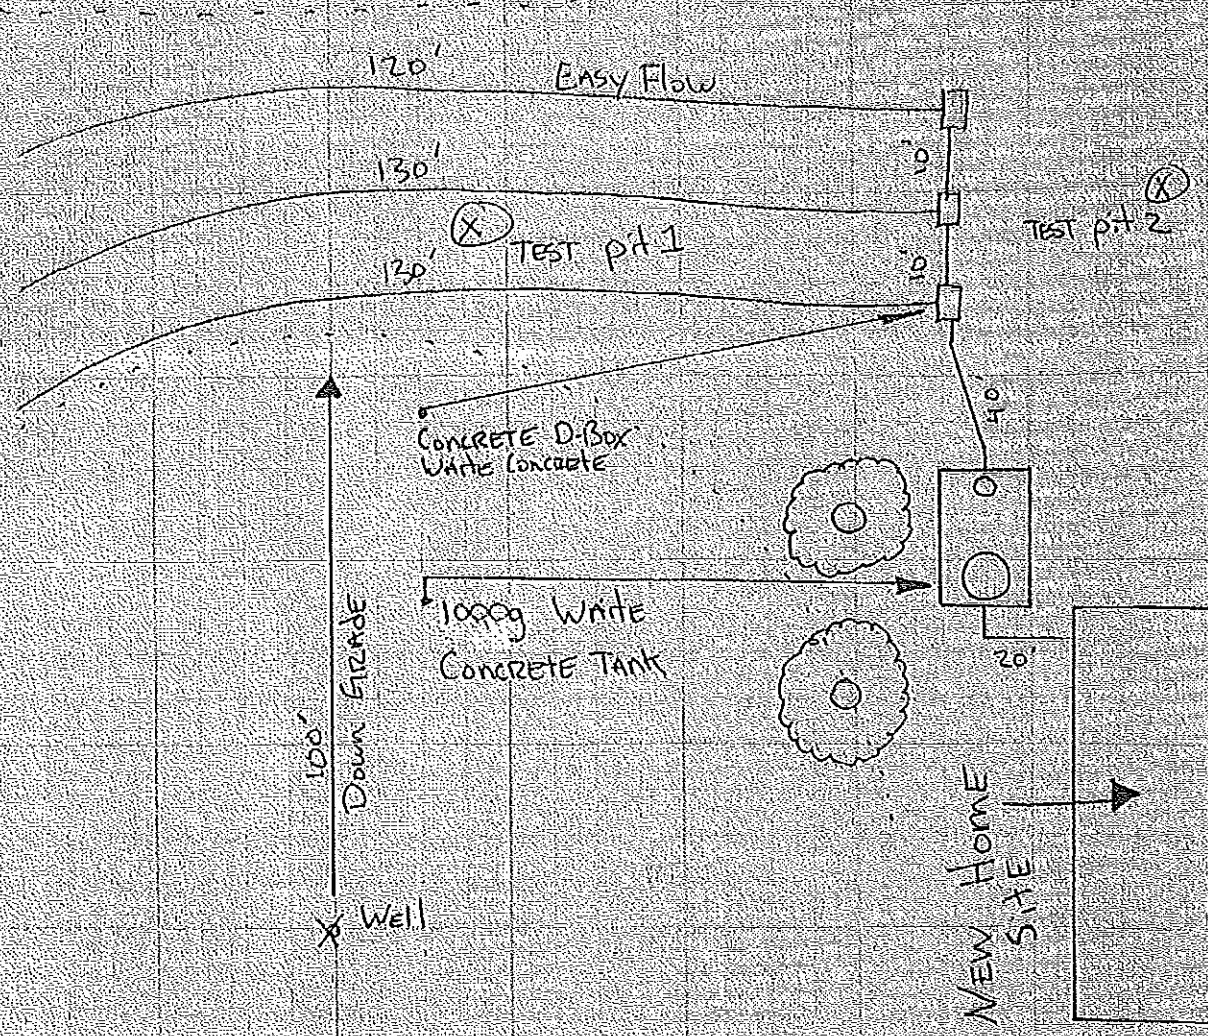 120'
EASY FLOW
10'
130'
TEST pit 1
TEST pit 2
130'
10'
CONCRETE D-BOX
WAITE CONCRETE
40'
1000g WAITE
CONCRETE TANK
20'
100'
DOWN GRADE
NEW HOME
SITE
WELL